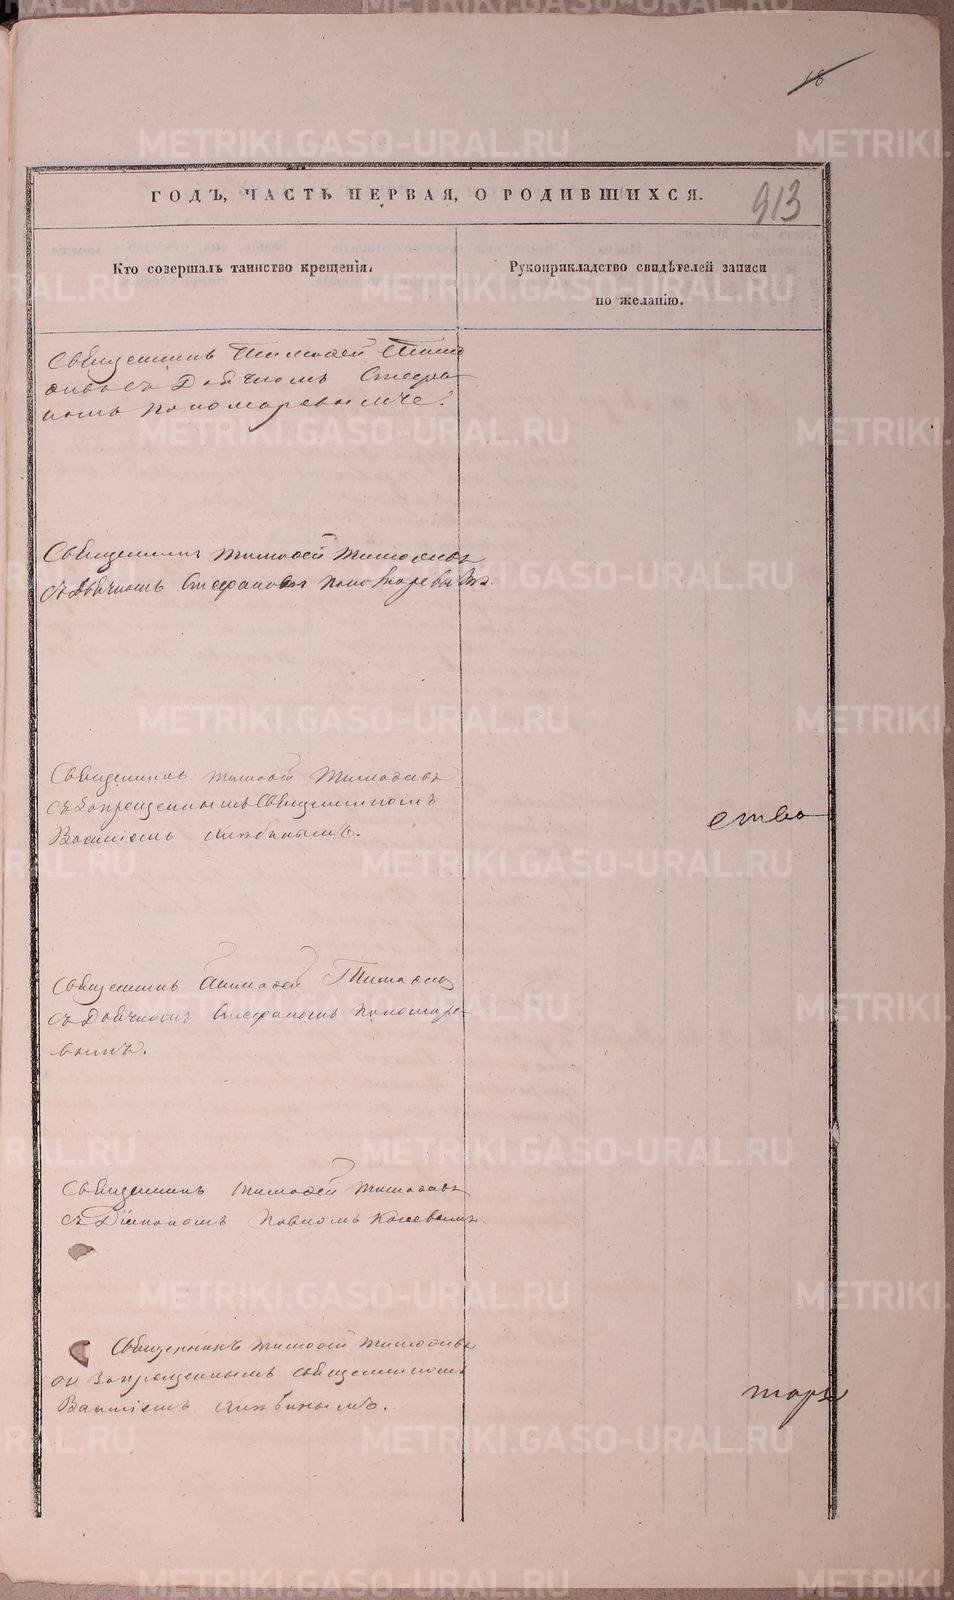 18
ГОДЪ, ЧАСТЬ ПЕРВАЯ, О РОДИВШИХСЯ.
913
Кто совершалъ таинство крещенія.
Рукоприкладство свидѣтелей записи
по желанію.
Священникъ Тимофей
съ Дьячкомъ Стефа-
номъ Пономаревымъ.
Священникъ Тимофей
съ Дьячкомъ Стефаномъ Пономаревымъ.
Священникъ Тимофей
съ Запрещеннымъ Священникомъ
Василіемъ
ство
Священникъ Тимофей
съ Дьячкомъ Стефаномъ Пономаре-
вымъ.
Священникъ Тимофей
съ Діакономъ Павломъ
Священникъ Тимофей
Запрещеннымъ Священникомъ
Василіемъ
торъ
METRIKI.GASO-URAL.RU